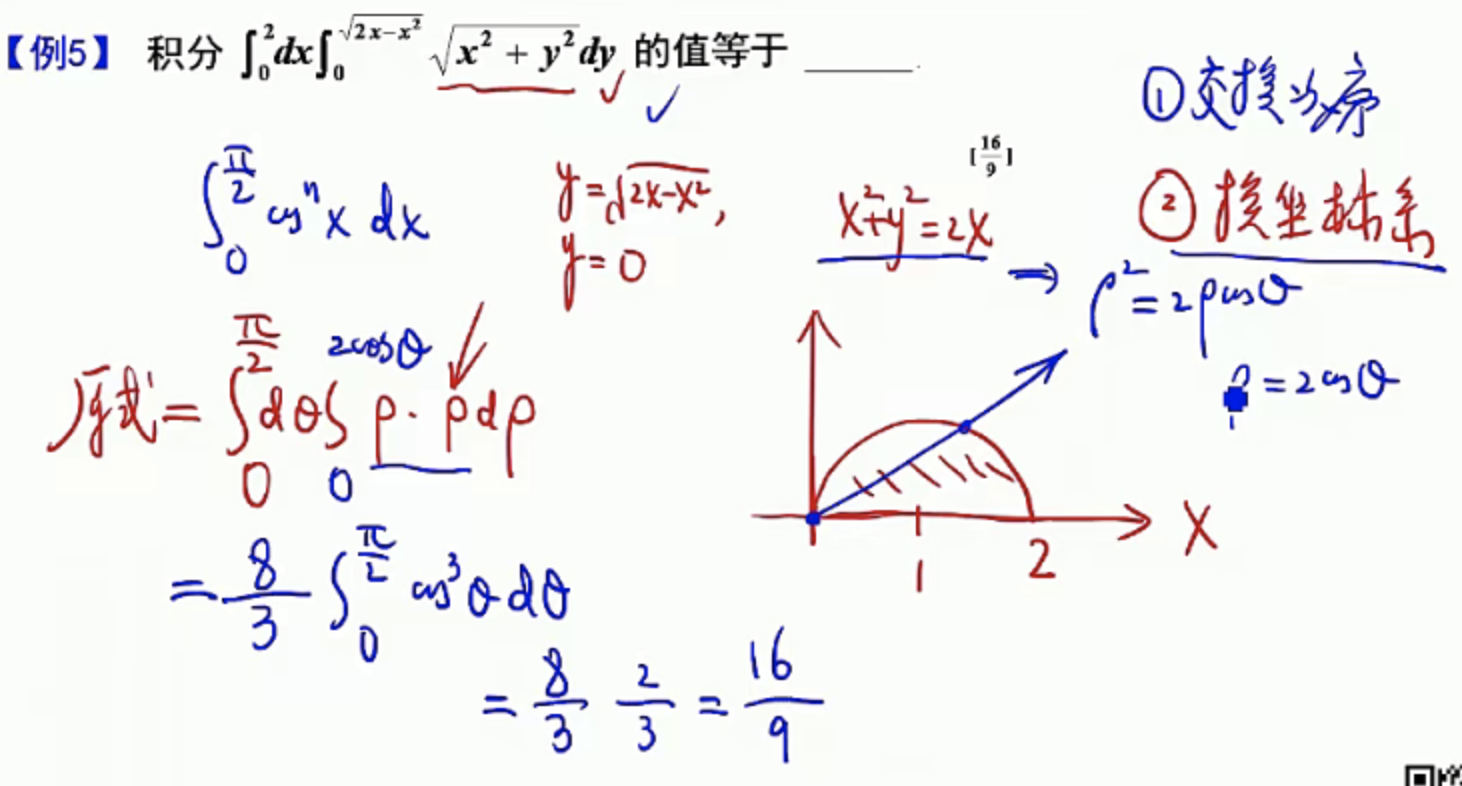 【例5】 积分 ∫₀² dx ∫₀^{√(2x−x²)} √(x² + y²) dy 的值等于 ______.
①交换次序
[16/9]
②换坐标系
∫₀^{π/2} cosⁿx dx
y=√(2x−x²),
y=0
x²+y²=2x
⇒ ρ²=2ρcosθ
ρ=2cosθ
原式=∫₀^{π/2} dθ ∫₀^{2cosθ} ρ·ρdρ
1 2 X
=8/3 ∫₀^{π/2} cos³θdθ
=8/3 2/3=16/9